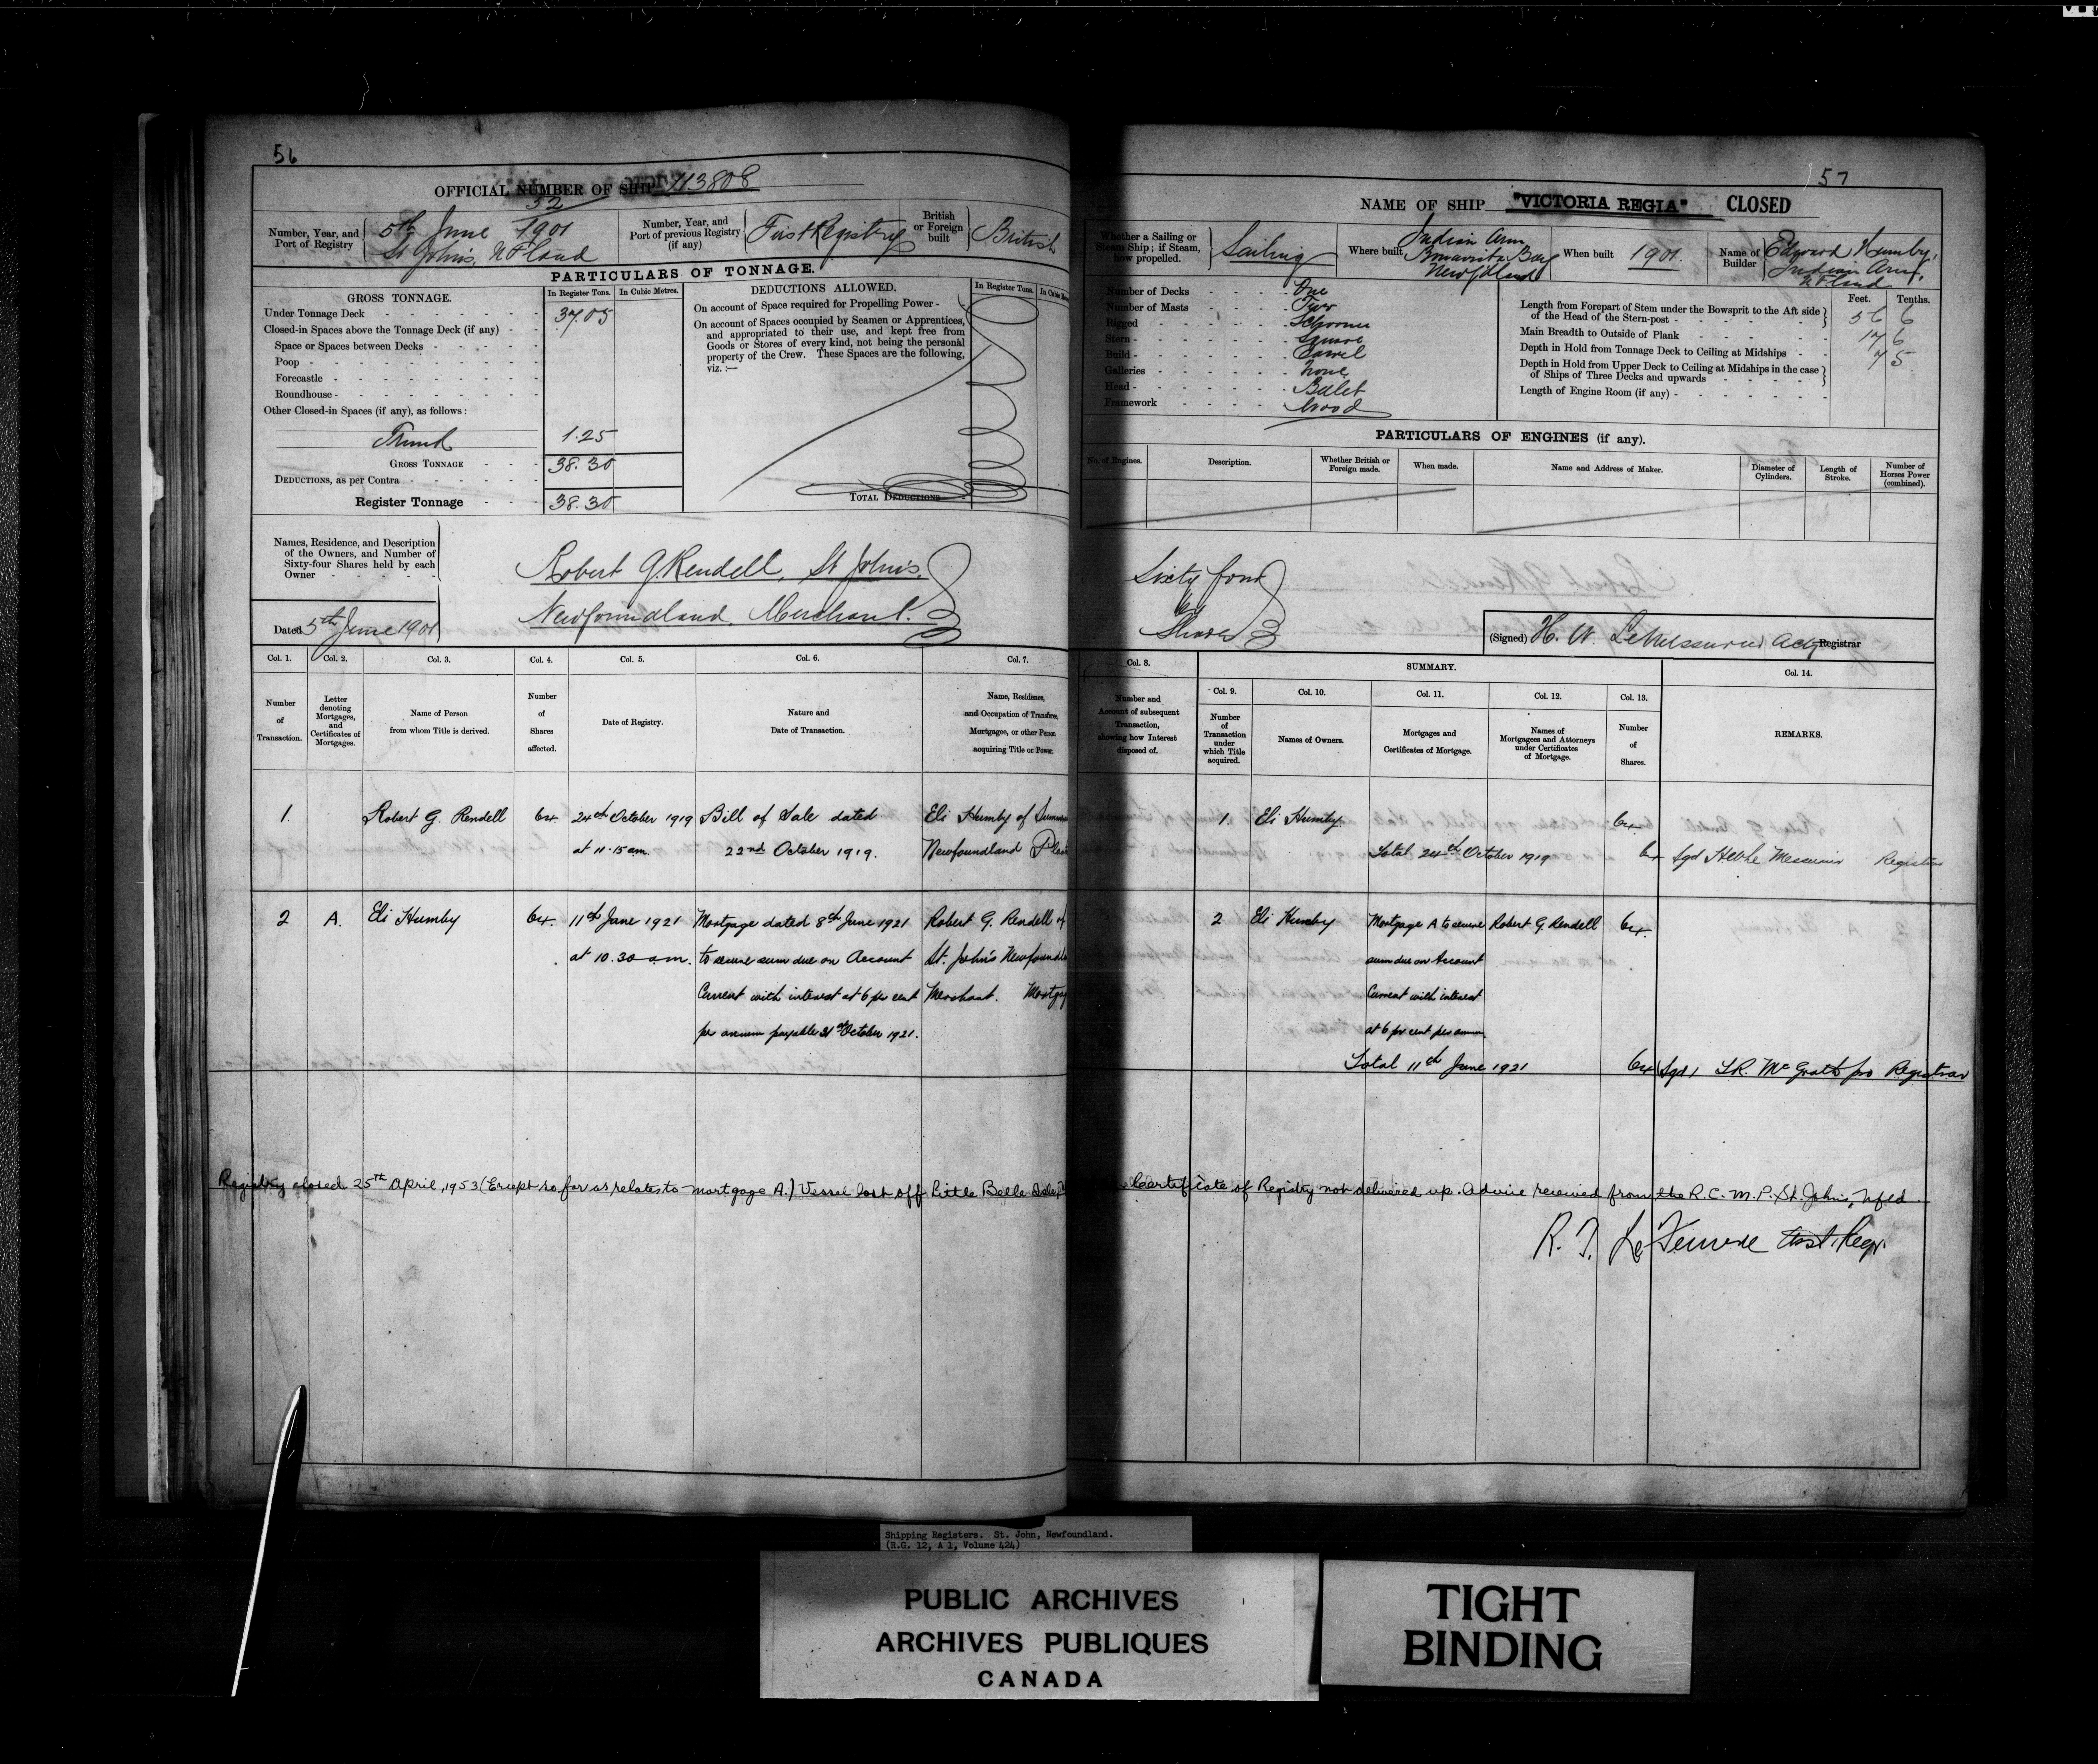 56
OFFICIAL NUMBER OF SHIP 113808
Number, Year, and Port of Registry
52
5th June 1901
St John's, NFland
Number, Year, and Port of previous Registry (if any)
First Registry
British or Foreign built
British
PARTICULARS OF TONNAGE.
GROSS TONNAGE.
In Register Tons.
In Cubic Metres.
Under Tonnage Deck 37.05
Closed-in Spaces above the Tonnage Deck (if any)
Space or Spaces between Decks
Poop
Forecastle
Roundhouse
Other Closed-in Spaces (if any), as follows:
Trunk 1.25
GROSS TONNAGE 38.30
DEDUCTIONS, as per Contra
Register Tonnage 38.30
DEDUCTIONS ALLOWED.
In Register Tons.
On account of Space required for Propelling Power
On account of Spaces occupied by Seamen or Apprentices,
and appropriated to their use, and kept free from
Goods or Stores of every kind, not being the personal
property of the Crew. These Spaces are the following,
viz. :—
TOTAL DEDUCTIONS
Names, Residence, and Description
of the Owners, and Number of
Sixty-four Shares held by each
Owner
Dated 5th June 1901
Robert G. Rendell, St John's,
Newfoundland, Merchant.
Col. 1. Col. 2. Col. 3. Col. 4. Col. 5. Col. 6. Col. 7.
Number of Transaction.
Letter denoting Mortgages, and Certificates of Mortgages.
Name of Person from whom Title is derived.
Number of Shares affected.
Date of Registry.
Nature and Date of Transaction.
Name, Residence, and Occupation of Transferee, Mortgagee, or other Person acquiring Title or Power.
1. Robert G. Rendell 64. 24th October 1919 Bill of Sale dated Eli Humby of
at 11.15 am. 22nd October 1919. Newfoundland
2 A. Eli Humby 64. 11th June 1921 Mortgage dated 8th June 1921 Robert G. Rendell of
at 10.30 a.m. to secure sum due on Account St. John's
Current with interest at 6 per cent Merchant.
per annum payable 31st October 1921.
57
NAME OF SHIP "VICTORIA REGIA" CLOSED
Whether a Sailing or Steam Ship; if Steam, how propelled.
Sailing
Where built
Indian Arm
Bonavista Bay
Newfdland
When built 1901.
Name of Builder
Edward Humby,
Indian Arm,
NFland
Number of Decks One
Number of Masts Two
Rigged Schooner
Stern Square
Build Carvel
Galleries None
Head Billet
Framework Wood
Feet. Tenths.
Length from Forepart of Stem under the Bowsprit to the Aft side
of the Head of the Stern-post 56 6
Main Breadth to Outside of Plank 17 6
Depth in Hold from Tonnage Deck to Ceiling at Midships 7 5
Depth in Hold from Upper Deck to Ceiling at Midships in the case
of Ships of Three Decks and upwards
Length of Engine Room (if any)
PARTICULARS OF ENGINES (if any).
No. of Engines.
Description.
Whether British or Foreign made.
When made.
Name and Address of Maker.
Diameter of Cylinders.
Length of Stroke.
Number of Horses Power (combined).
Sixty four
64
Shares
(Signed) H. W. LeMessurier Actg Registrar
Col. 8.
SUMMARY.
Col. 14.
Col. 9. Col. 10. Col. 11. Col. 12. Col. 13.
Number and Amount of subsequent Transaction, showing how Interest disposed of.
Number of Transaction under which Title acquired.
Names of Owners.
Mortgages and Certificates of Mortgage.
Names of Mortgagees and Attorneys under Certificates of Mortgage.
Number of Shares.
REMARKS.
1. Eli Humby 64.
Total 24th October 1919 64 Sgd H W Le Messurier Registrar
2 Eli Humby Mortgage A to secure Robert G. Rendell 64.
sum due on Account
Current with interest
at 6 per cent per annum
Total 11th June 1921 64 Sgd McGrath pro Registrar
Registry closed 25th April, 1953 (Except so far as relates to mortgage A.) Vessel lost off Little Belle Isle, Certificate of Registry not delivered up. Advice received from the R.C.M.P. St. John's, Nfld.
Asst. Regr.
Shipping Registers. St. John, Newfoundland.
(R.G. 12, A 1, Volume 424)
PUBLIC ARCHIVES
ARCHIVES PUBLIQUES
CANADA
TIGHT
BINDING